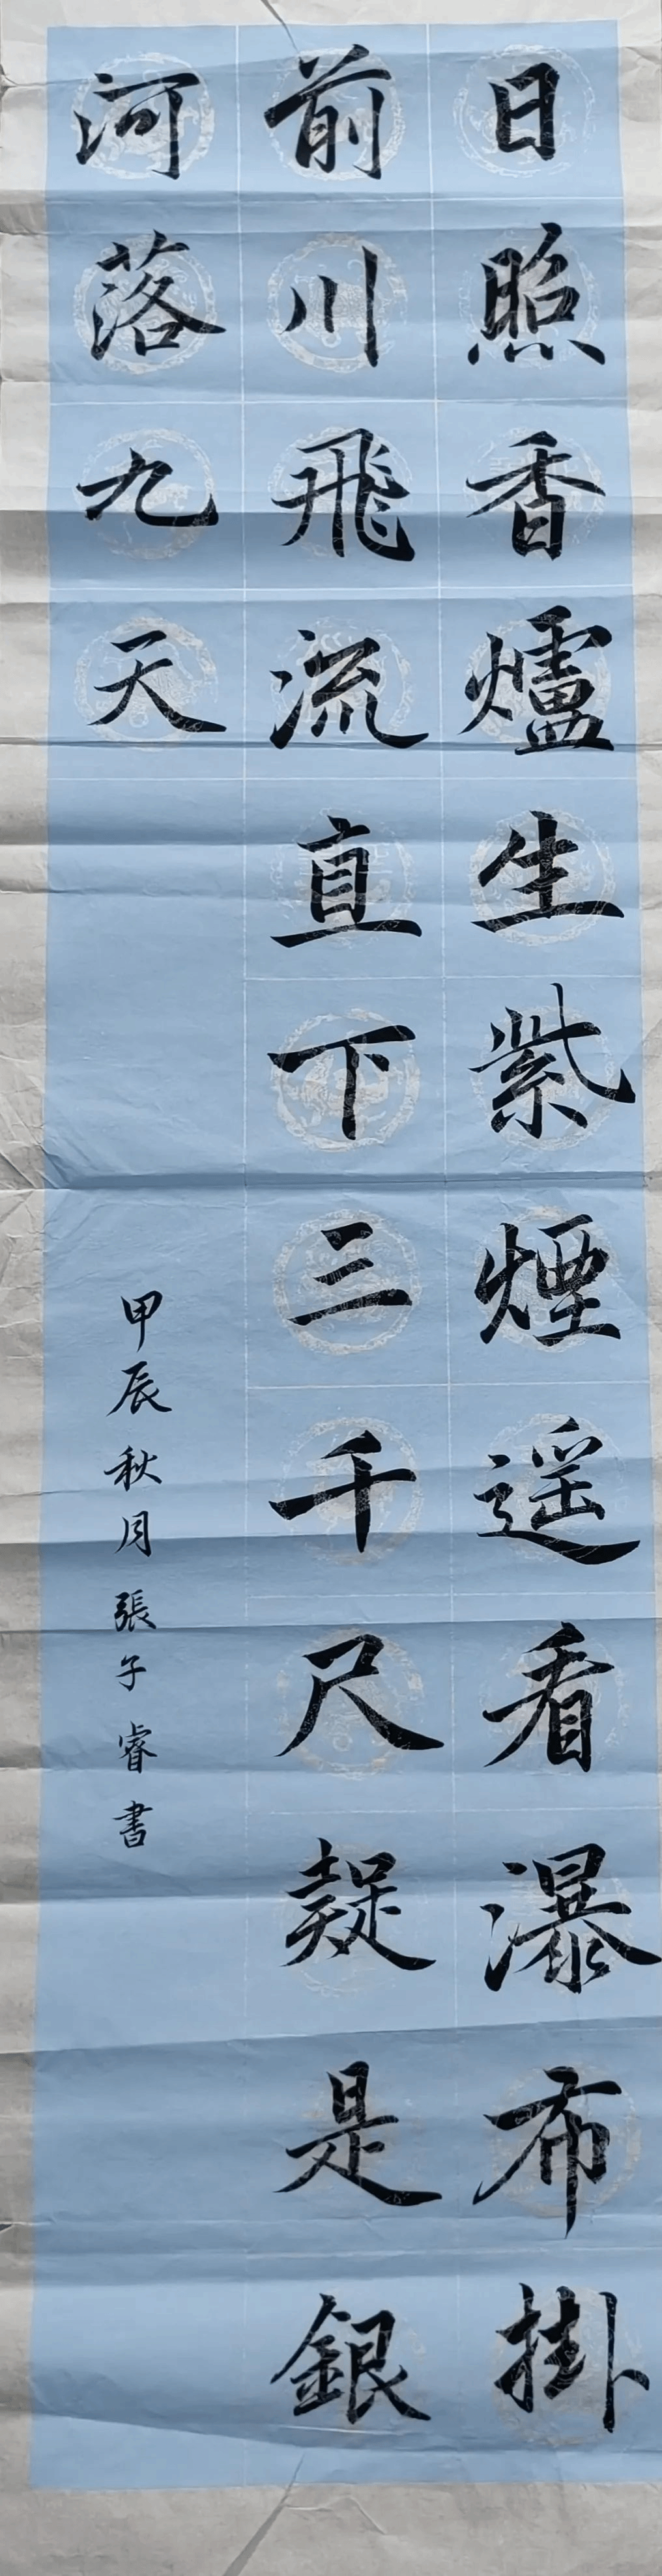 日照香爐生紫煙遥看瀑布掛
前川飛流直下三千尺疑是銀
河落九天
甲辰秋月張子睿書